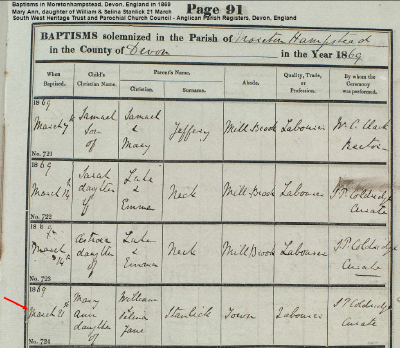 Baptisms in Moretonhampstead, Devon, England in 1869
Mary Ann, daughter of William & Selina Stanlick 21 March
South West Heritage Trust and Parochial Church Council - Anglican Parish Registers, Devon, England
Page 91
BAPTISMS solemnized in the Parish of Moreton Hampstead
in the County of Devon in the Year 1869
When Baptized. Child's Christian Name. Parent's Name. Christian. Surname. Abode. Quality, Trade, or Profession. By whom the Ceremony was performed.
1869 March 7th Samuel Son of Samuel & Mary Jeffery Mill Brook Labourer Wm. C. Clack Rector
No. 721
1869 March 14th Sarah daughter of Luke & Emma Neck Mill Brook Labourer J P Coldridge Curate
No. 722
March 14th daughter of Luke & Emma Neck Mill Brook Labourer J. P. Coldridge Curate
No. 723
1869 March 21st Mary Ann daughter of William Selina Jane Stanlick Town Labourer J P Coldridge Curate
No. 724